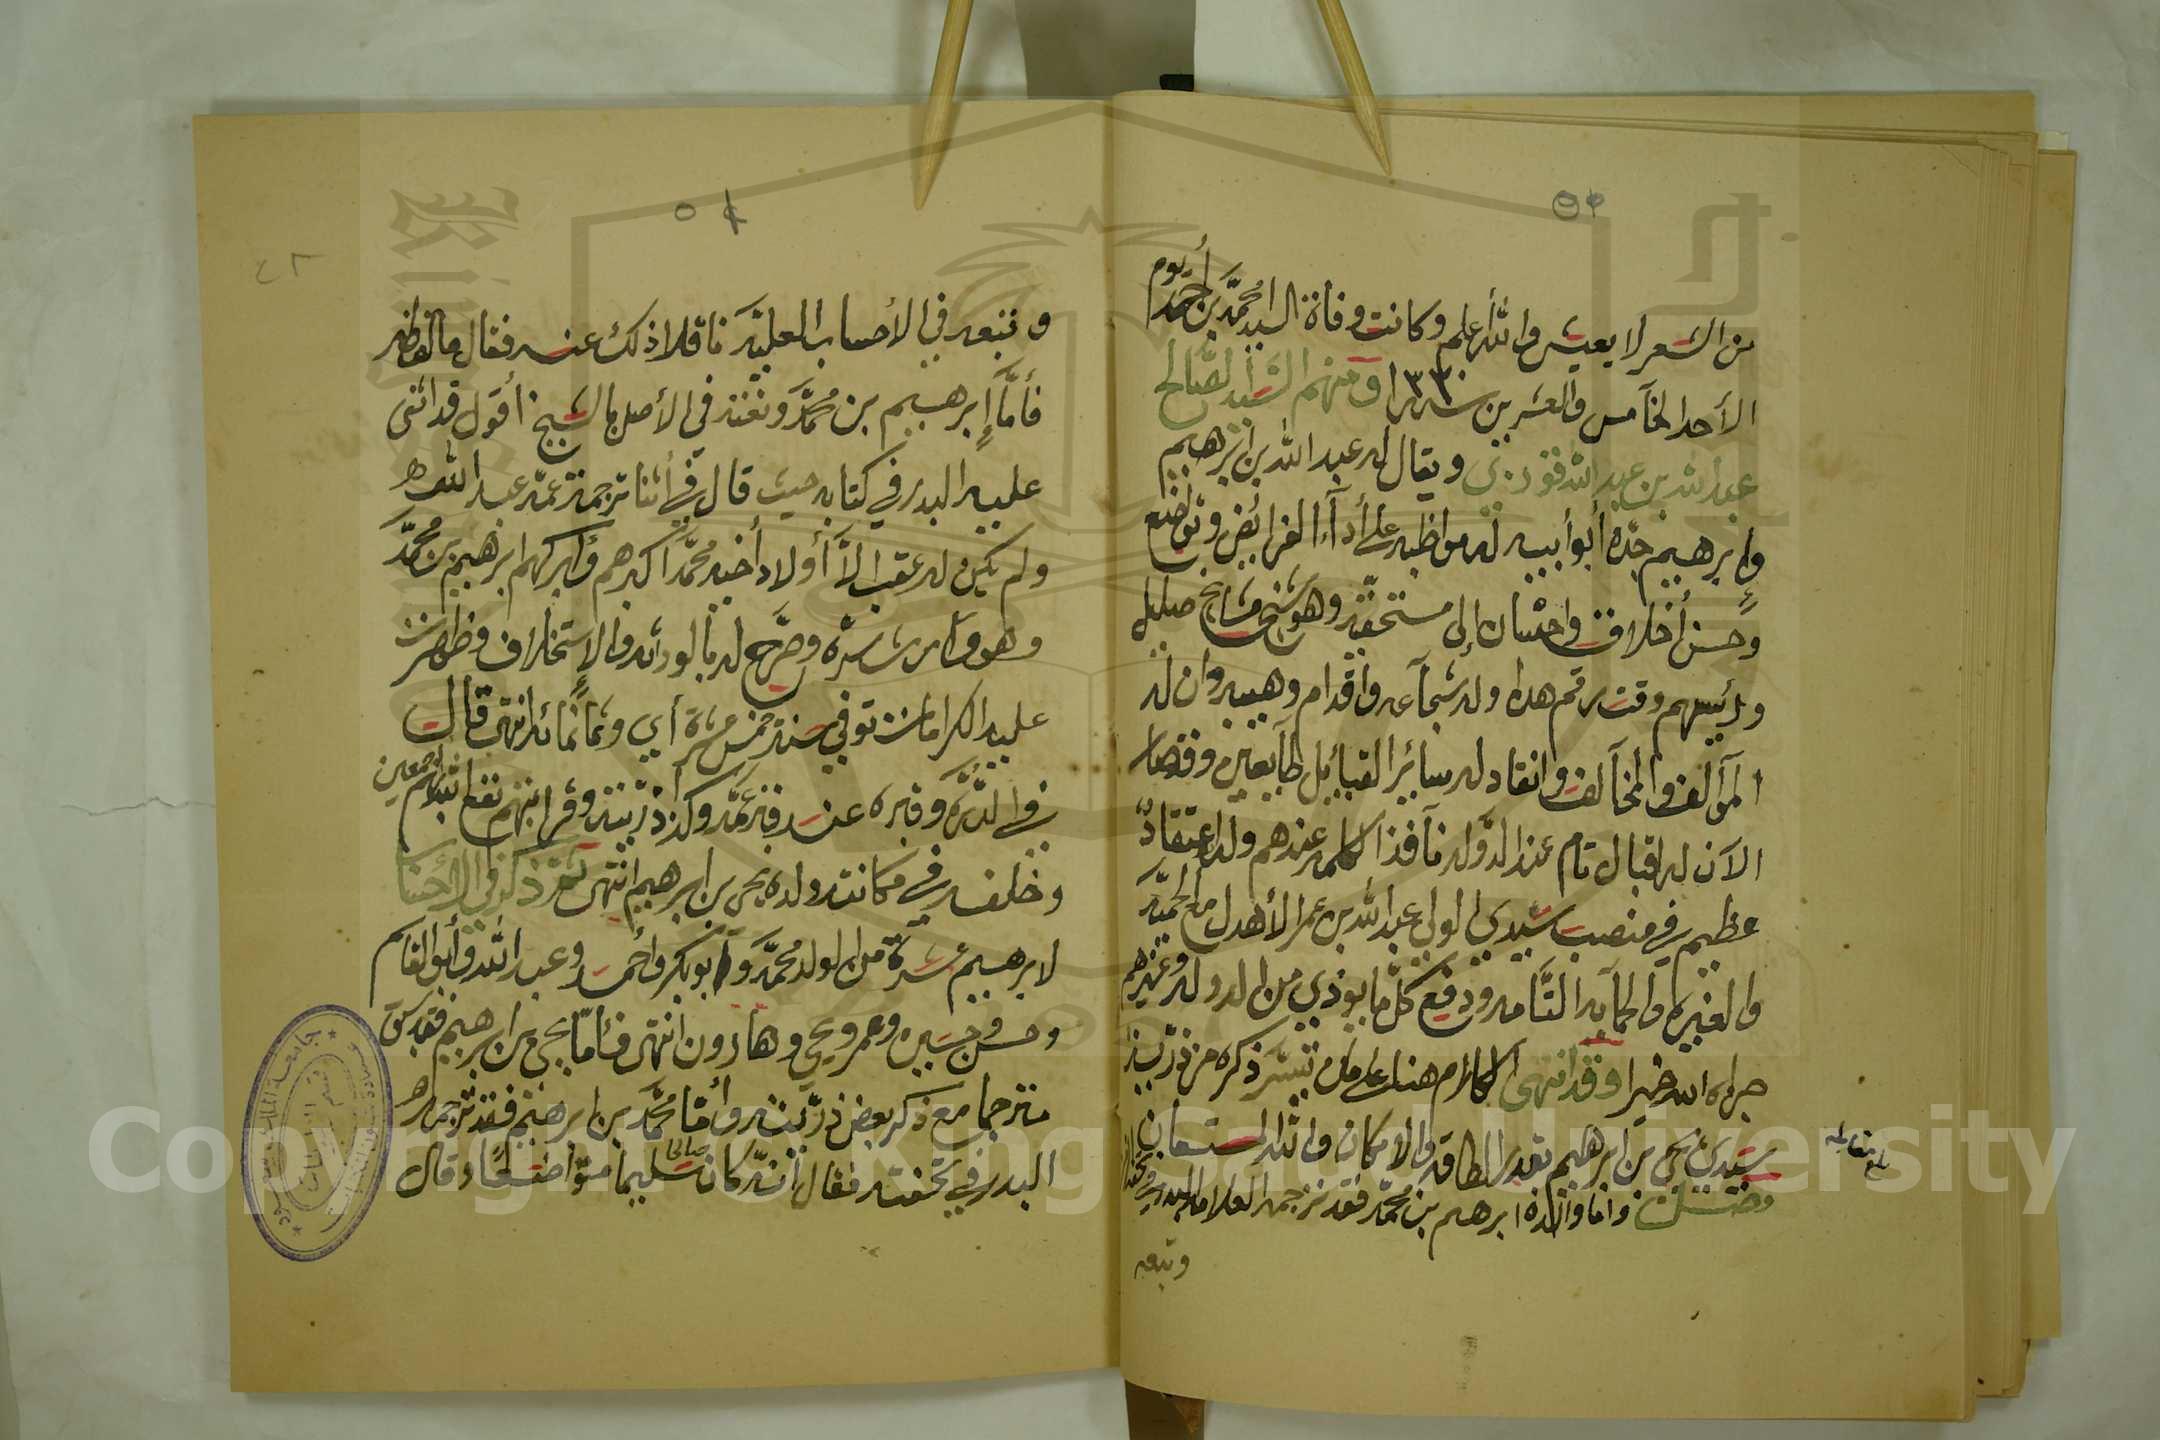 من الشعر لا يعيش والله أعلم وكانت وفاة السيد محمد بن أحمد يوم
الأحد الخامس والعشرين سنة ١٣٣٠ ومنهم السيد الصالح
عبد الله بن عبد الله فقودي ويقال له عبد الله بن إبراهيم
وإبراهيم جده أبو أبيه له مواظبه على أداء الفرائض وتواضع
وحسن أخلاق واحسان إلى مستحقيه وهو شيخ مشايخ صليل
ورئيسهم وقت رقم هذا وله شجاعه واقدام وهيبه وان له
المؤالف والمخالف وانقاد له سائر القبائل طايعين وقضا
الآن له اقبال تام عند الدوله نافذ الكلمه عندهم وله اعتقاد
عظيم في منصب سيدي الولي عبد الله بن عمر الأهدل مع الحميه
والغيره والحمايه التامه ودفع كل ما يوذي من الدوله وغيرهم
جزاه الله خيرا وقد انتهى الكلام هنا على من تيسر ذكره من ذرية
سيدي يحي بن إبراهيم بقدر الطاقه والإمكان والله المستعان
وأما والده ابرهيم بن محمد فقد ترجمه العلامه البدر في تحفته
وتبعه
بلغ مقابله
٥٢
وتبعه في الأحساب العليه ناقلا ذلك عنه فقال مالفظه
فأما إبرهيم بن محمد ونعته في الأصل بالشيخ أقول قد اثنى
عليه البدر في كتابه حيث قال في أثنا ترجمة عمه عبد الله
ولم يكن له عقب الا أولاد أخيه محمد أكبرهم وأبركهم إبرهيم بن محمد
وهو وارث سره وصرح له بالوراثه والإستخلاف وظهرت
عليه الكرامات توفي سنة خمس عشرة أي وثمانمائه انتهى قال
في الدره وقبره عند قبر عمه وكذا ذريته وقرابتهم نفع الله بهم أجمعين
وخلفه في مكانته ولده يحي بن إبرهيم انتهى نعم ذكر في الأحساب
لإبرهيم عشرة من الولد محمد وأبوبكر وأحمد وعبد الله وأبو القاسم
وحسن وحسين وعمر ويحي وهارون انتهى فأما يحي بن ابرهيم فقد سبق
مترجما مع ذكر بعض ذريته وأما محمد بن ابرهيم فقد ترجمه
البدر في تحفته فقال أنه كان صالحا سليما متواضعا وقال
Copyright © King Saud University